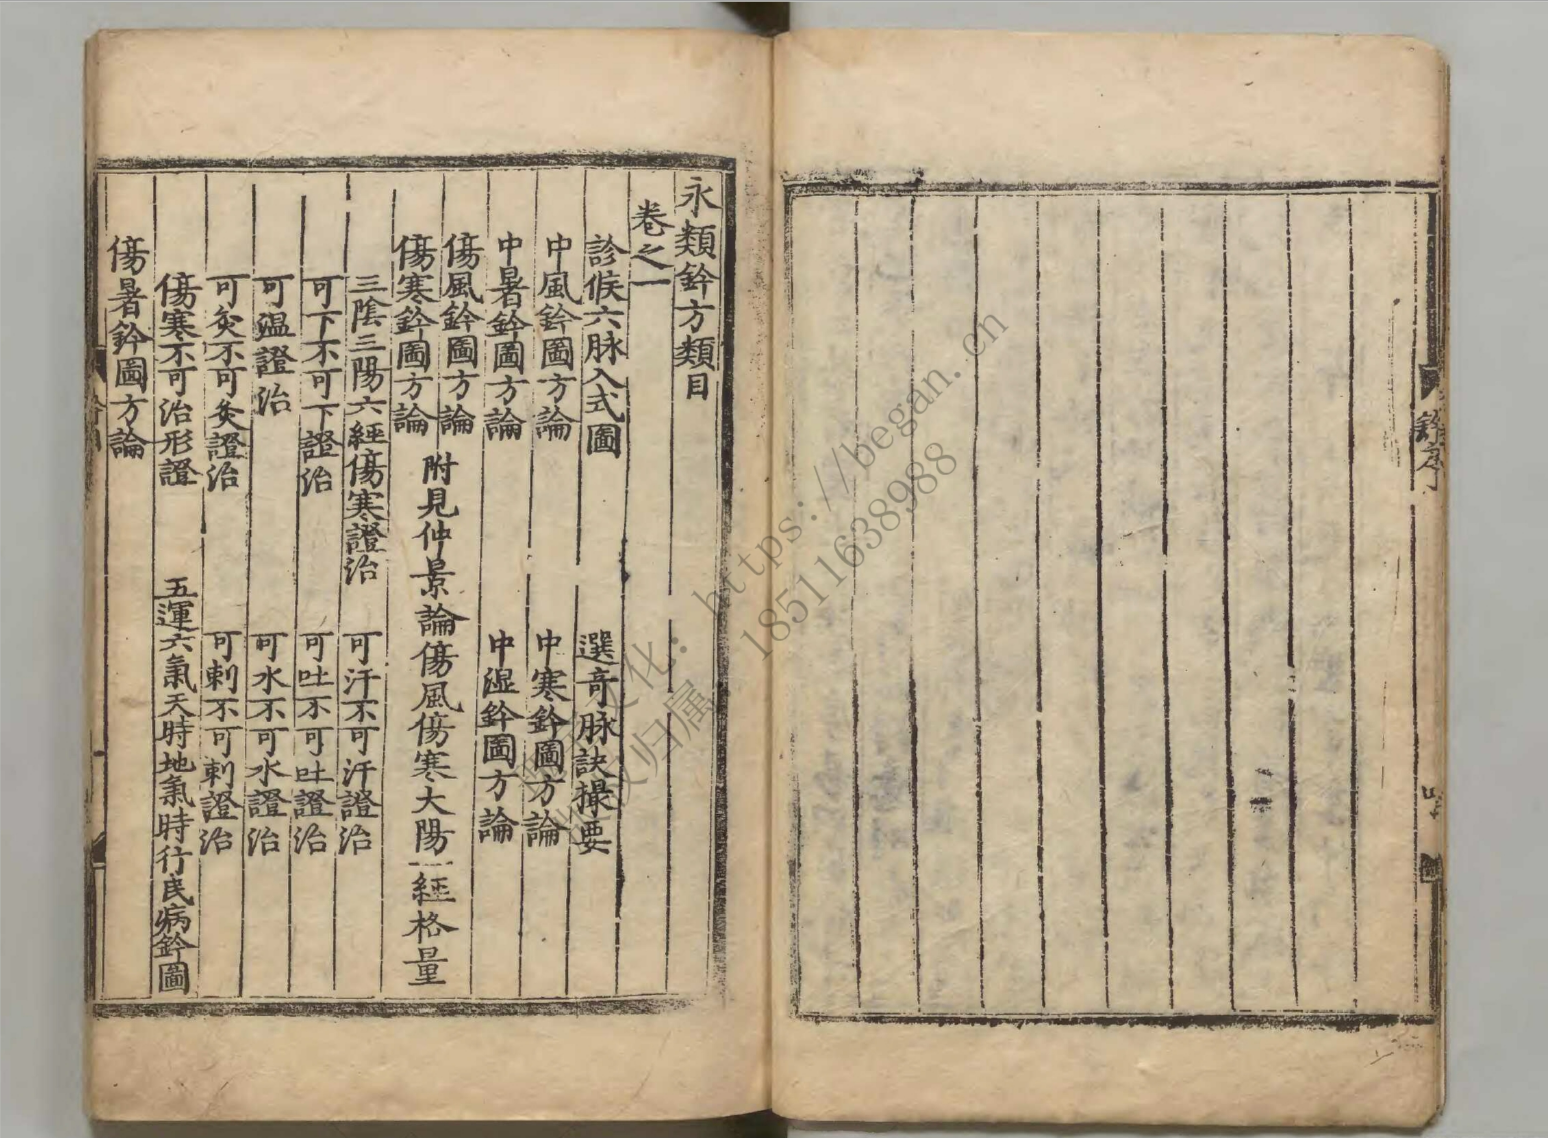 永類鈐方類目
卷之一
診候六脉入式圖　選奇脉訣撮要
中風鈐圖方論　中寒鈐圖方論
中暑鈐圖方論　中濕鈐圖方論
傷風鈐圖方論
傷寒鈐圖方論　附見仲景論傷風傷寒大陽一經格量
三陰三陽六經傷寒證治　可汗不可汗證治
可下不可下證治　可吐不可吐證治
可溫證治　可水不可水證治
可灸不可灸證治　可刺不可刺證治
傷寒不可治形證　五運六氣天時地氣時行民病鈐圖
傷暑鈐圖方論
https://began.cn
18511638988